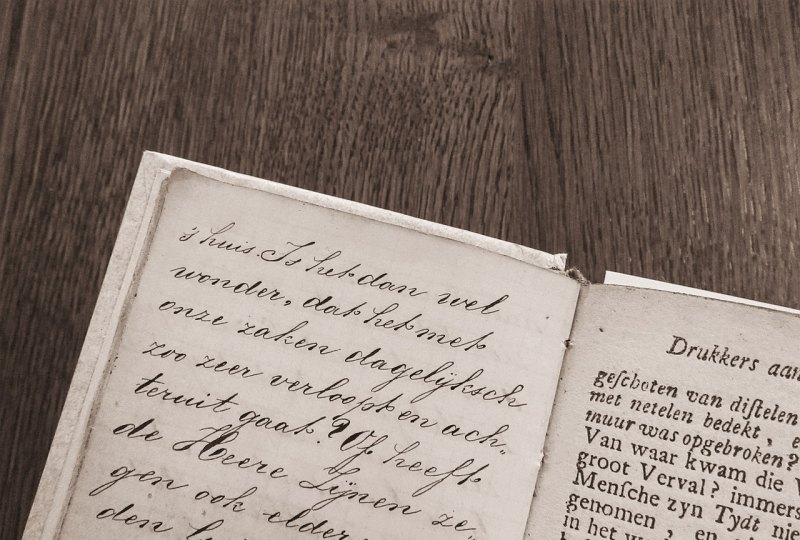 's huis. Is het dan wel
wonder, dat het met
onze zaken dagelijksch
zoo zeer verloopt en ach„
teruit gaat? Of heeft
de Heere Zijnen ze„
gen ook elder
den
Drukkers aan
geſchoten van diſtelen
met netelen bedekt, e
muur was opgebroken?
Van waar kwam die
groot Verval? immers
Menſche zyn Tydt nie
genomen, en
in het